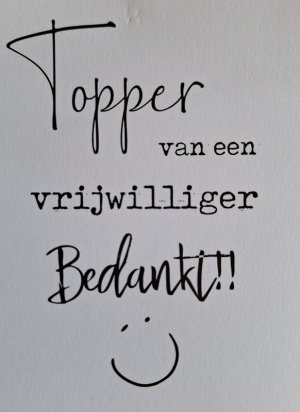 Topper
van een
vrijwilliger
Bedankt!!